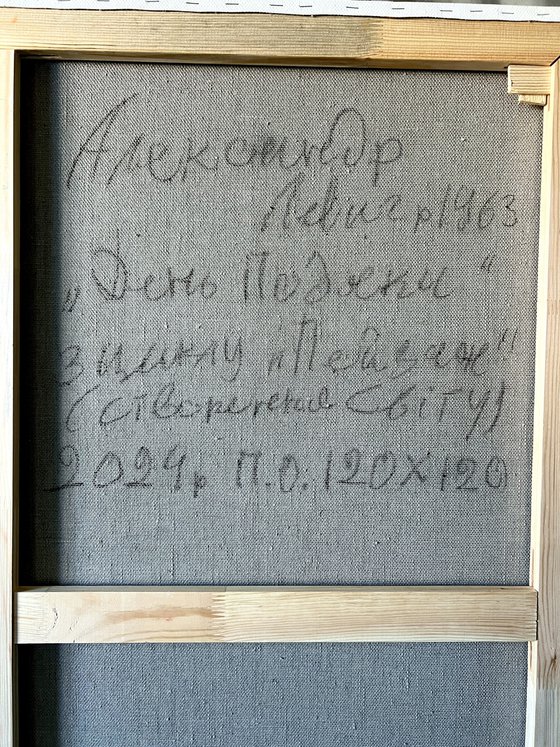 Александр
Левич р1963
„День Подяки“
з циклу „Пейзаж"
(створення світу)
2024р П.О. 120Х120